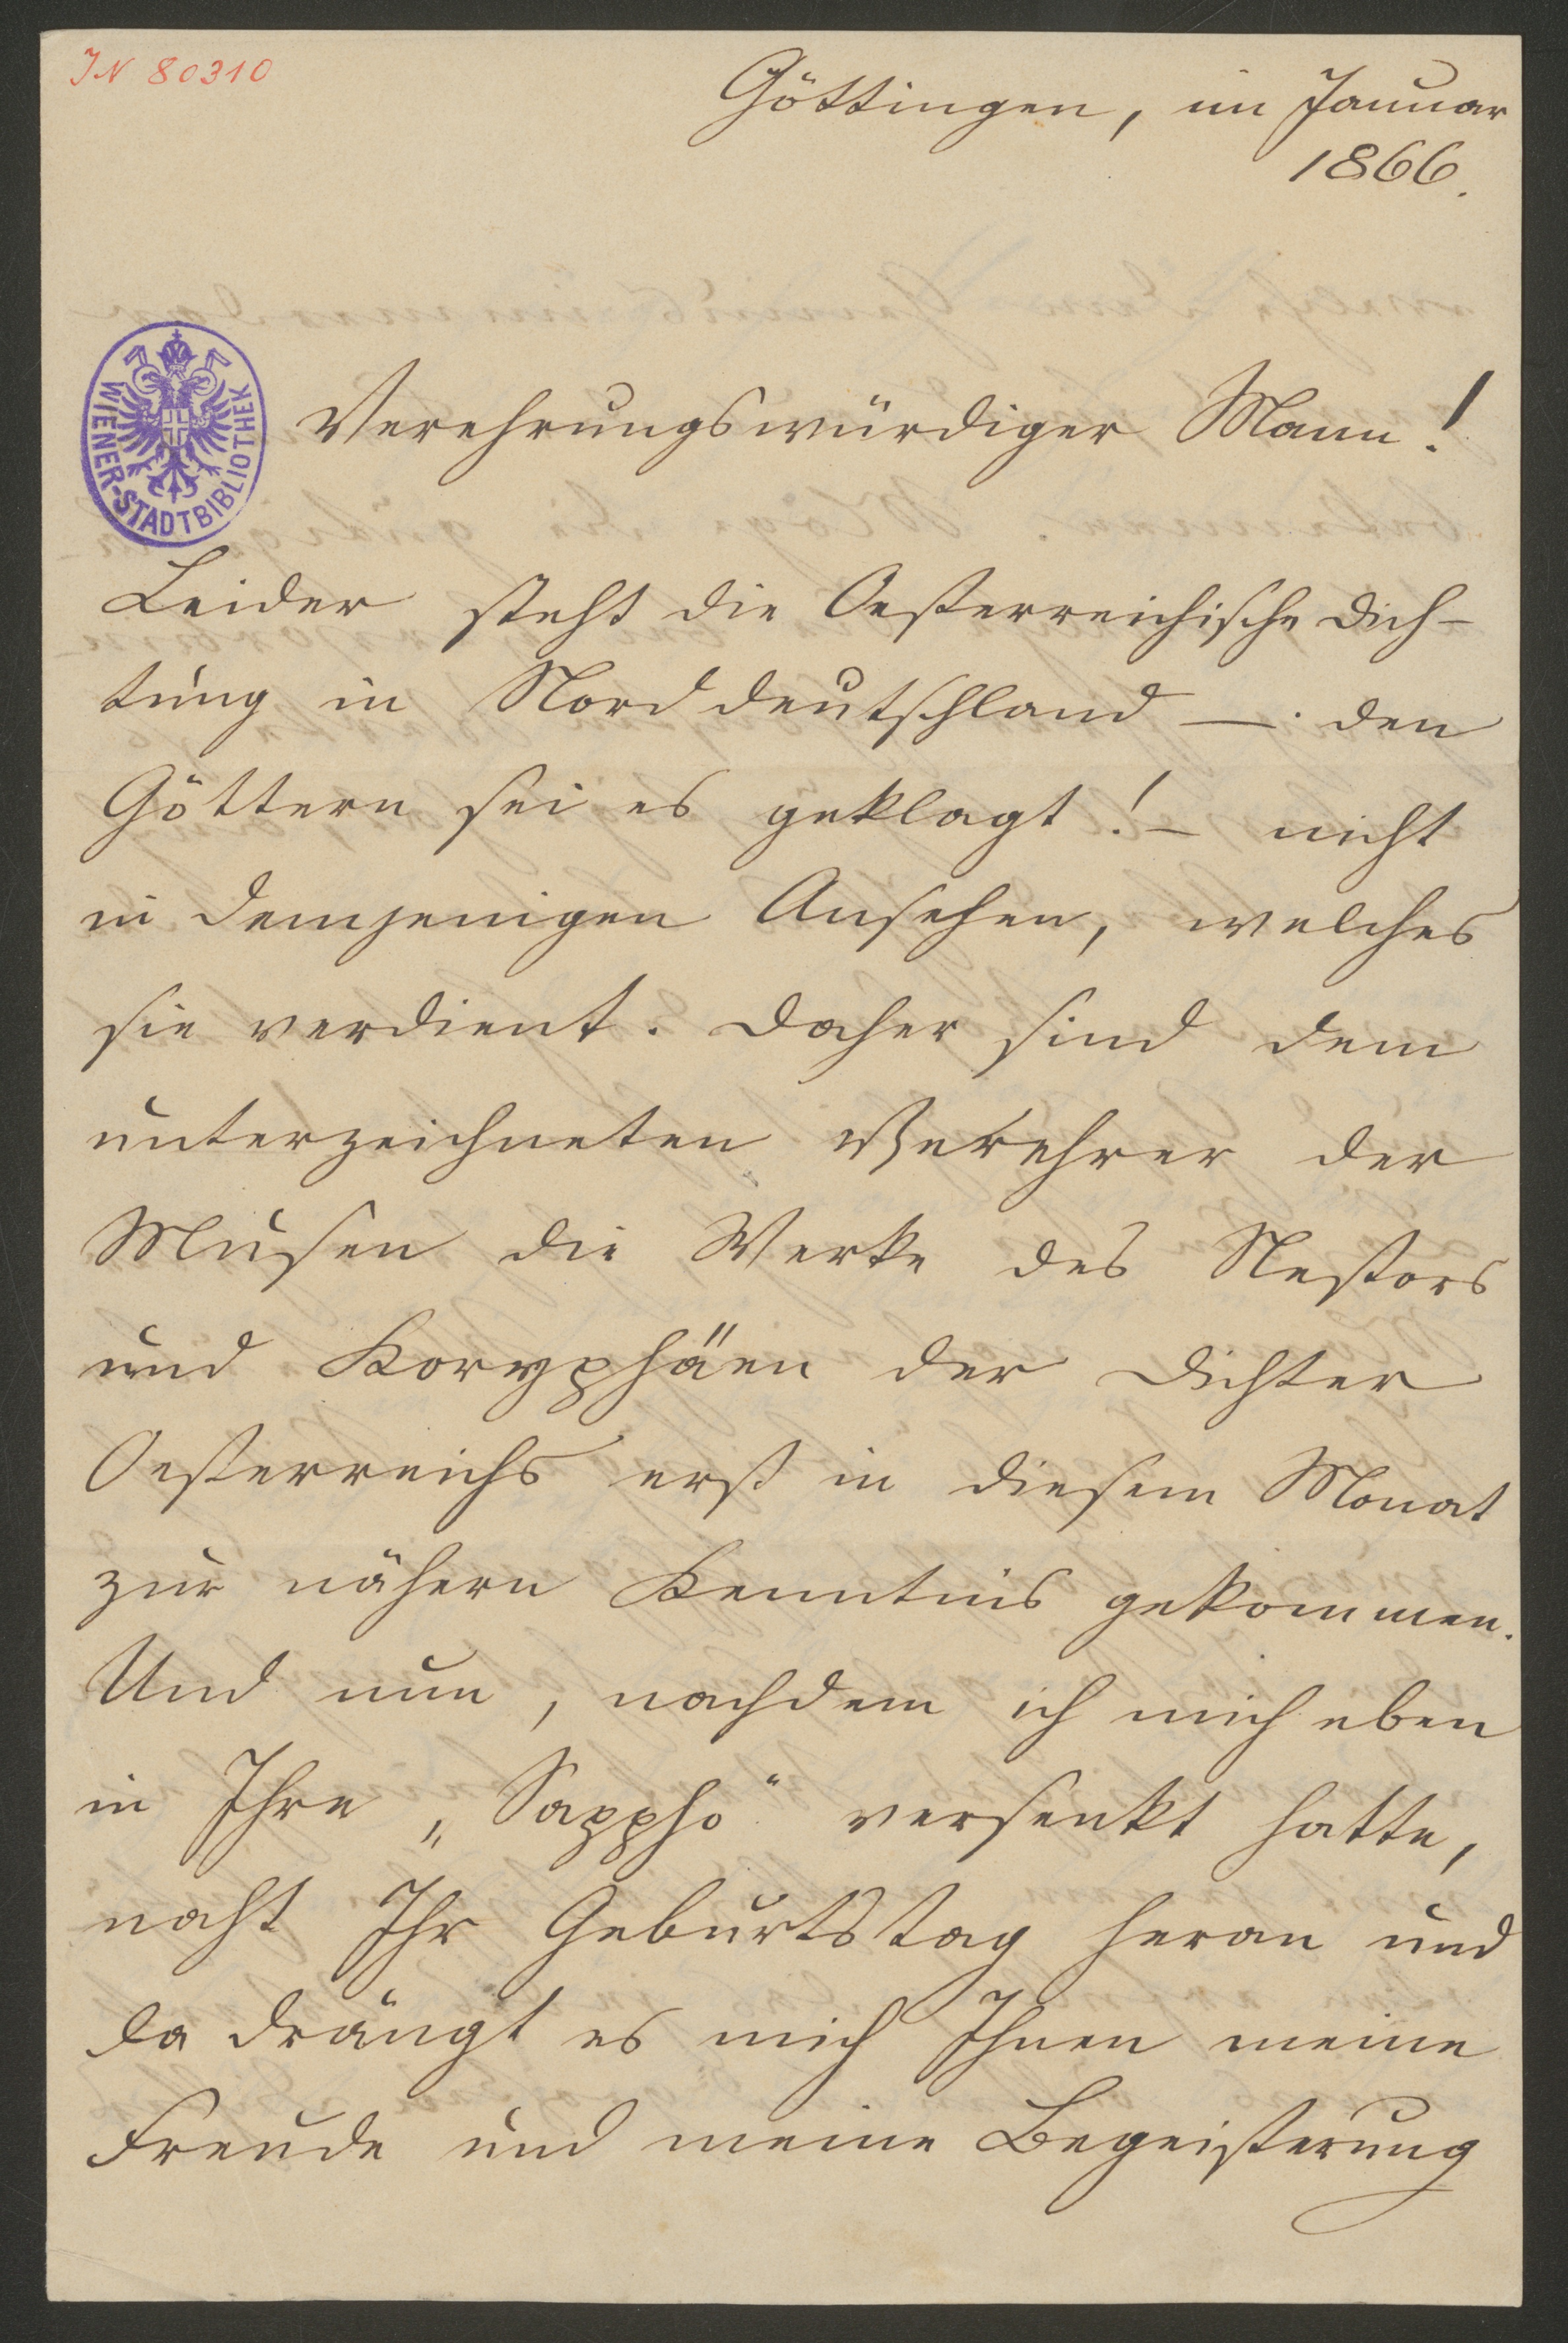 JN 80310
Göttingen, im Januar
1866.
WIENER-STADTBIBLIOTHEK
Verehrungswürdiger Mann!
Leider steht die Oesterreichische Dich-
tung in Norddeutschland —. den
Göttern sei es geklagt! — nicht
in demjenigen Ansehen, welches
sie verdient. Daher sind dem
unterzeichneten Verehrer der
Musen die Werke des Nestors
und Koryphäen der Dichter
Oesterreichs erst in diesem Monat
zur nähern Kenntnis gekommen.
Und nun, nachdem ich mich eben
in Ihre „Sappho“ versenkt hatte,
naht Ihr Geburtstag heran und
da drängt es mich Ihnen meine
Freude und meine Begeisterung